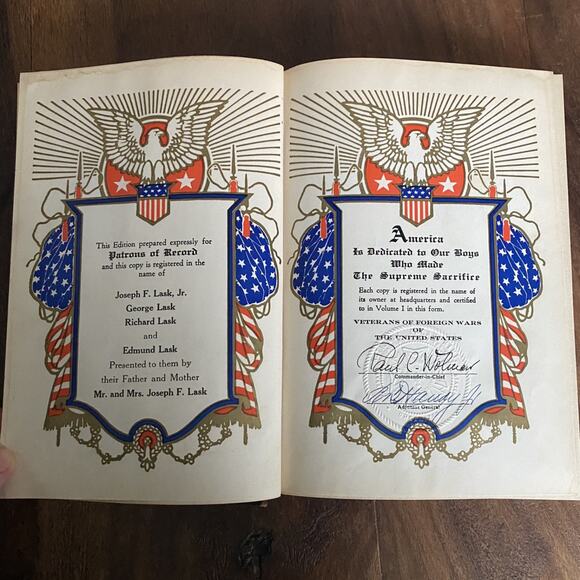 This Edition prepared expressly for
Patrons of Record
and this copy is registered in the
name of
Joseph F. Lask, Jr.
George Lask
Richard Lask
and
Edmund Lask
Presented to them by
their Father and Mother
Mr. and Mrs. Joseph F. Lask
America
Is Dedicated to Our Boys
Who Made
The Supreme Sacrifice
Each copy is registered in the name of
its owner at headquarters and certified
to in Volume I in this form.
VETERANS OF FOREIGN WARS
OF
THE UNITED STATES
Paul C. Wolman
Commander-in-Chief
Adjutant General